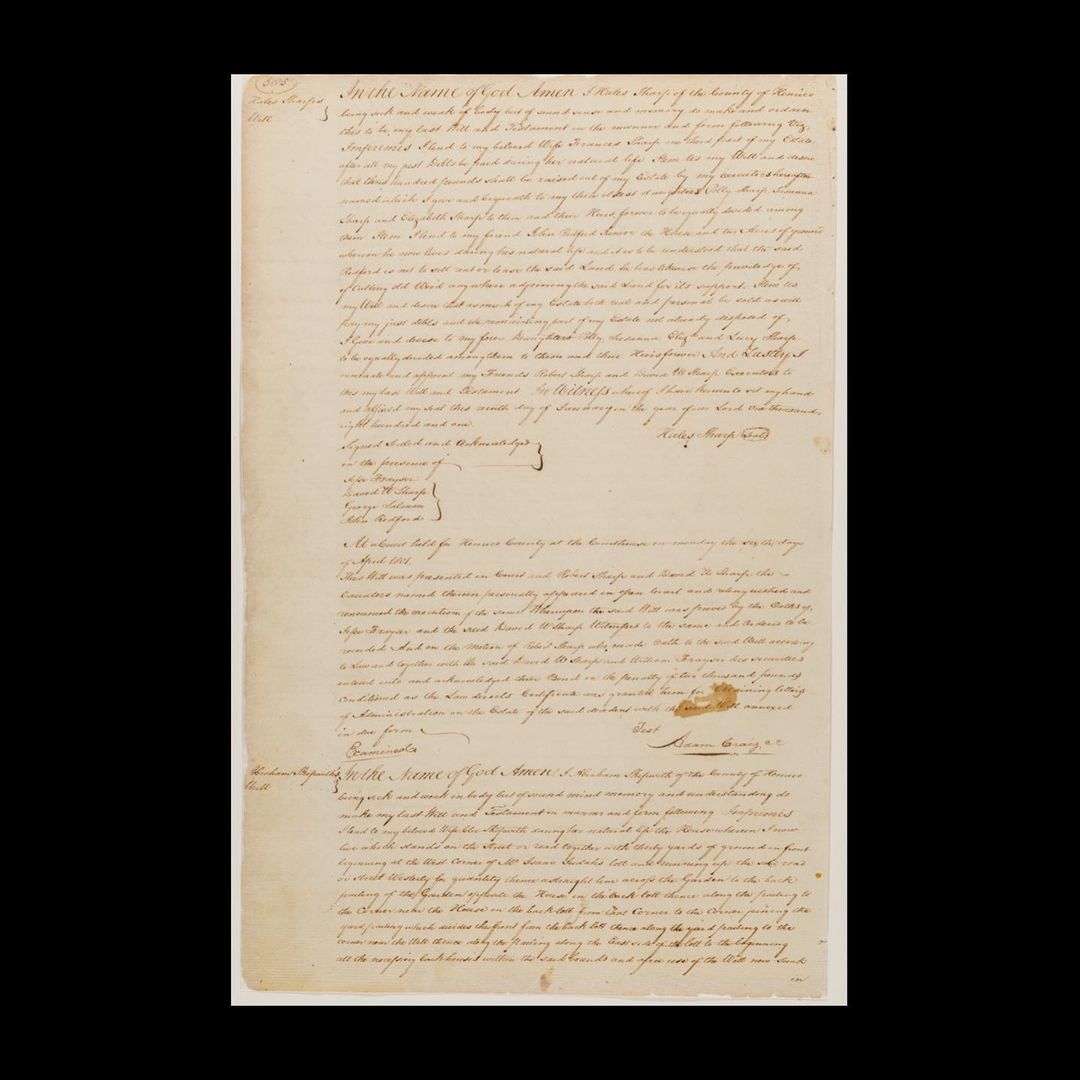 Hales Sharp's
Will
In the Name of God Amen I Hales Sharp of the County of Henrico
being sick and weak of Body but of sound sense and memory do make and ordain
this to be my last Will and Testament in the manner and form following Viz.
Imprimis I lend to my beloved Wife Frances Sharp one third part of my Estate
after all my just Debts be paid during her natural life Item tis my Will and desire
that three hundred pounds shall be raised out of my Estate by my executors hereafter
named which I give and bequeath to my three eldest daughters Polly Sharp Susanna
Sharp and Elizabeth Sharp to them and their Heirs forever to be equally divided among
them Item I lend to my friend John Redford Junior the House and two Acres of ground
whereon he now lives during his natural life and it is to be understood that the said
Redford is not to sell rent or lease the said Land he has likewise the priviledge of
of Cutting old Wood anywhere adjoining the said Land for its support Item tis
my Will and desire that as much of my Estate both real and personal be sold as will
pay my just debts and the remaining part of my Estate not already disposed of,
I Give and devise to my four Daughters Polly, Susanna Eliz and Lucy Sharp
to be equally divided among them to them and their Heirs forever And Lastly I
nominate and appoint my Friends Robert Sharp and David W Sharp Executors to
this my last Will and Testament In Witness whereof I have hereunto set my hand
and affixed my seal this ninth day of January in the year of our Lord One thousand
eight hundred and one.
Hales Sharp Seal
Signed Sealed and Acknowledged
in the presence of
Jesse Frayser
David W Sharp
George Salmon
John Redford
At a Court held for Henrico County at the Courthouse on monday the sixth day
of April 1801.
This Will was presented in Court and Robert Sharp and David W Sharp the
Executors named therein personally appeared in open Court and relinquished and
renounced the execution of the same Whereupon the said Will was proved by the Oaths of
Jesse Frayser and the said David W Sharp Witnesses to the same and Ordered to be
recorded And on the Motion of Robert Sharp who made Oath to the said Will according
to Law and together with the said David W Sharp and William Frayser his securities
entered into and acknowledged their Bond in the penalty of two thousand pounds
conditioned as the Law directs Certificate was granted him for Obtaining letters
of Administration on the Estate of the said decedent with the said Will annexed
in due form
Test
Examined
Adam Craig CC
Abraham Skipwith's
Will
In the Name of God Amen I Abraham Skipwith of the County of Henrico
being sick and weak in body but of sound mind memory and understanding do
make my last Will and Testament in manner and form following Imprimis
I lend to my beloved Wife Cloe Skipwith during her natural life the House wherein I now
live which stands on the Street or road together with thirty yards of ground in front
beginning at the West Corner of Mr Isaac Judah's lott and running up the said road
or Street Westerly for quantity thence a straight line across the Garden to the back
paling of the Garden opposite the House in the back lott thence along the paling to
the Corner near the House in the back lott from that Corner to the Corner joining the
yard paling which divides the front from the back lott thence along the yard paling to the
corner near the Well thence along the Paling along the East side of the lott to the beginning
all the necessary back houses within the said bounds and a free use of the Well now sunk
in